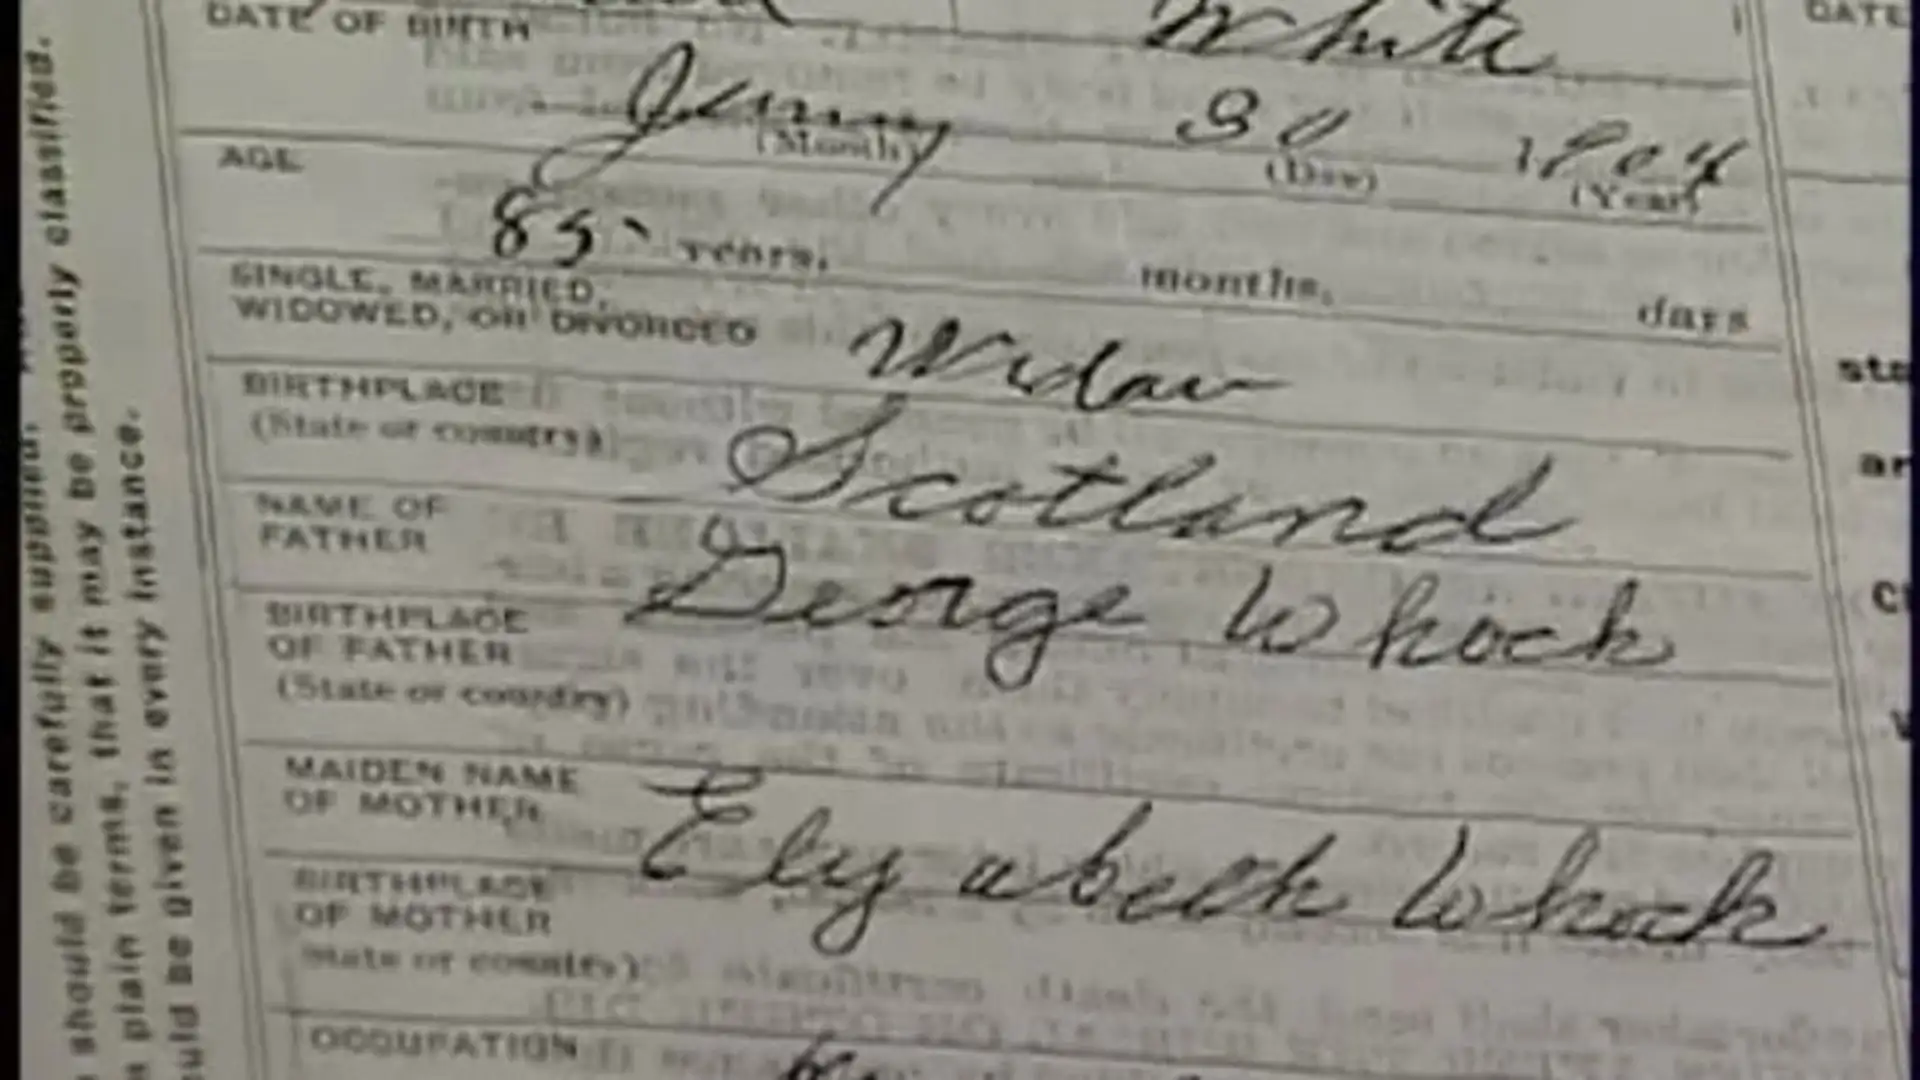 White
DATE OF BIRTH
DATE
30
(Month)
(Day)
(Year)
AGE
85 years, months, days
SINGLE, MARRIED,
WIDOWED, OR DIVORCED
Widow
BIRTHPLACE
(State or country)
Scotland
NAME OF
FATHER
George Whock
BIRTHPLACE
OF FATHER
(State or country)
MAIDEN NAME
OF MOTHER
Elyabeth Whock
BIRTHPLACE
OF MOTHER
State or country)
OCCUPATION
should be carefully supplied.
plain terms, that it may be properly classified.
uld be given in every instance.